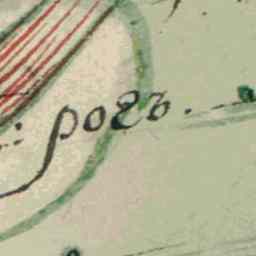 : рогъ.